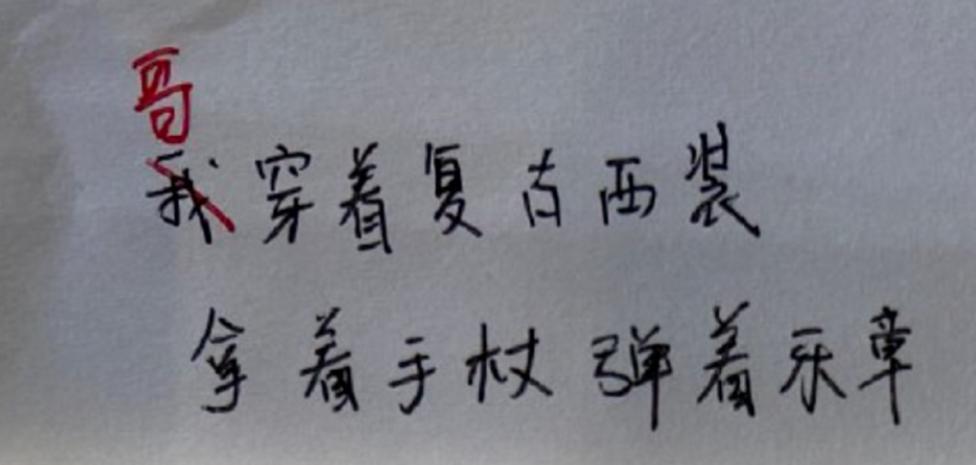 哥
我穿着复古西装
拿着手杖 弹着乐章